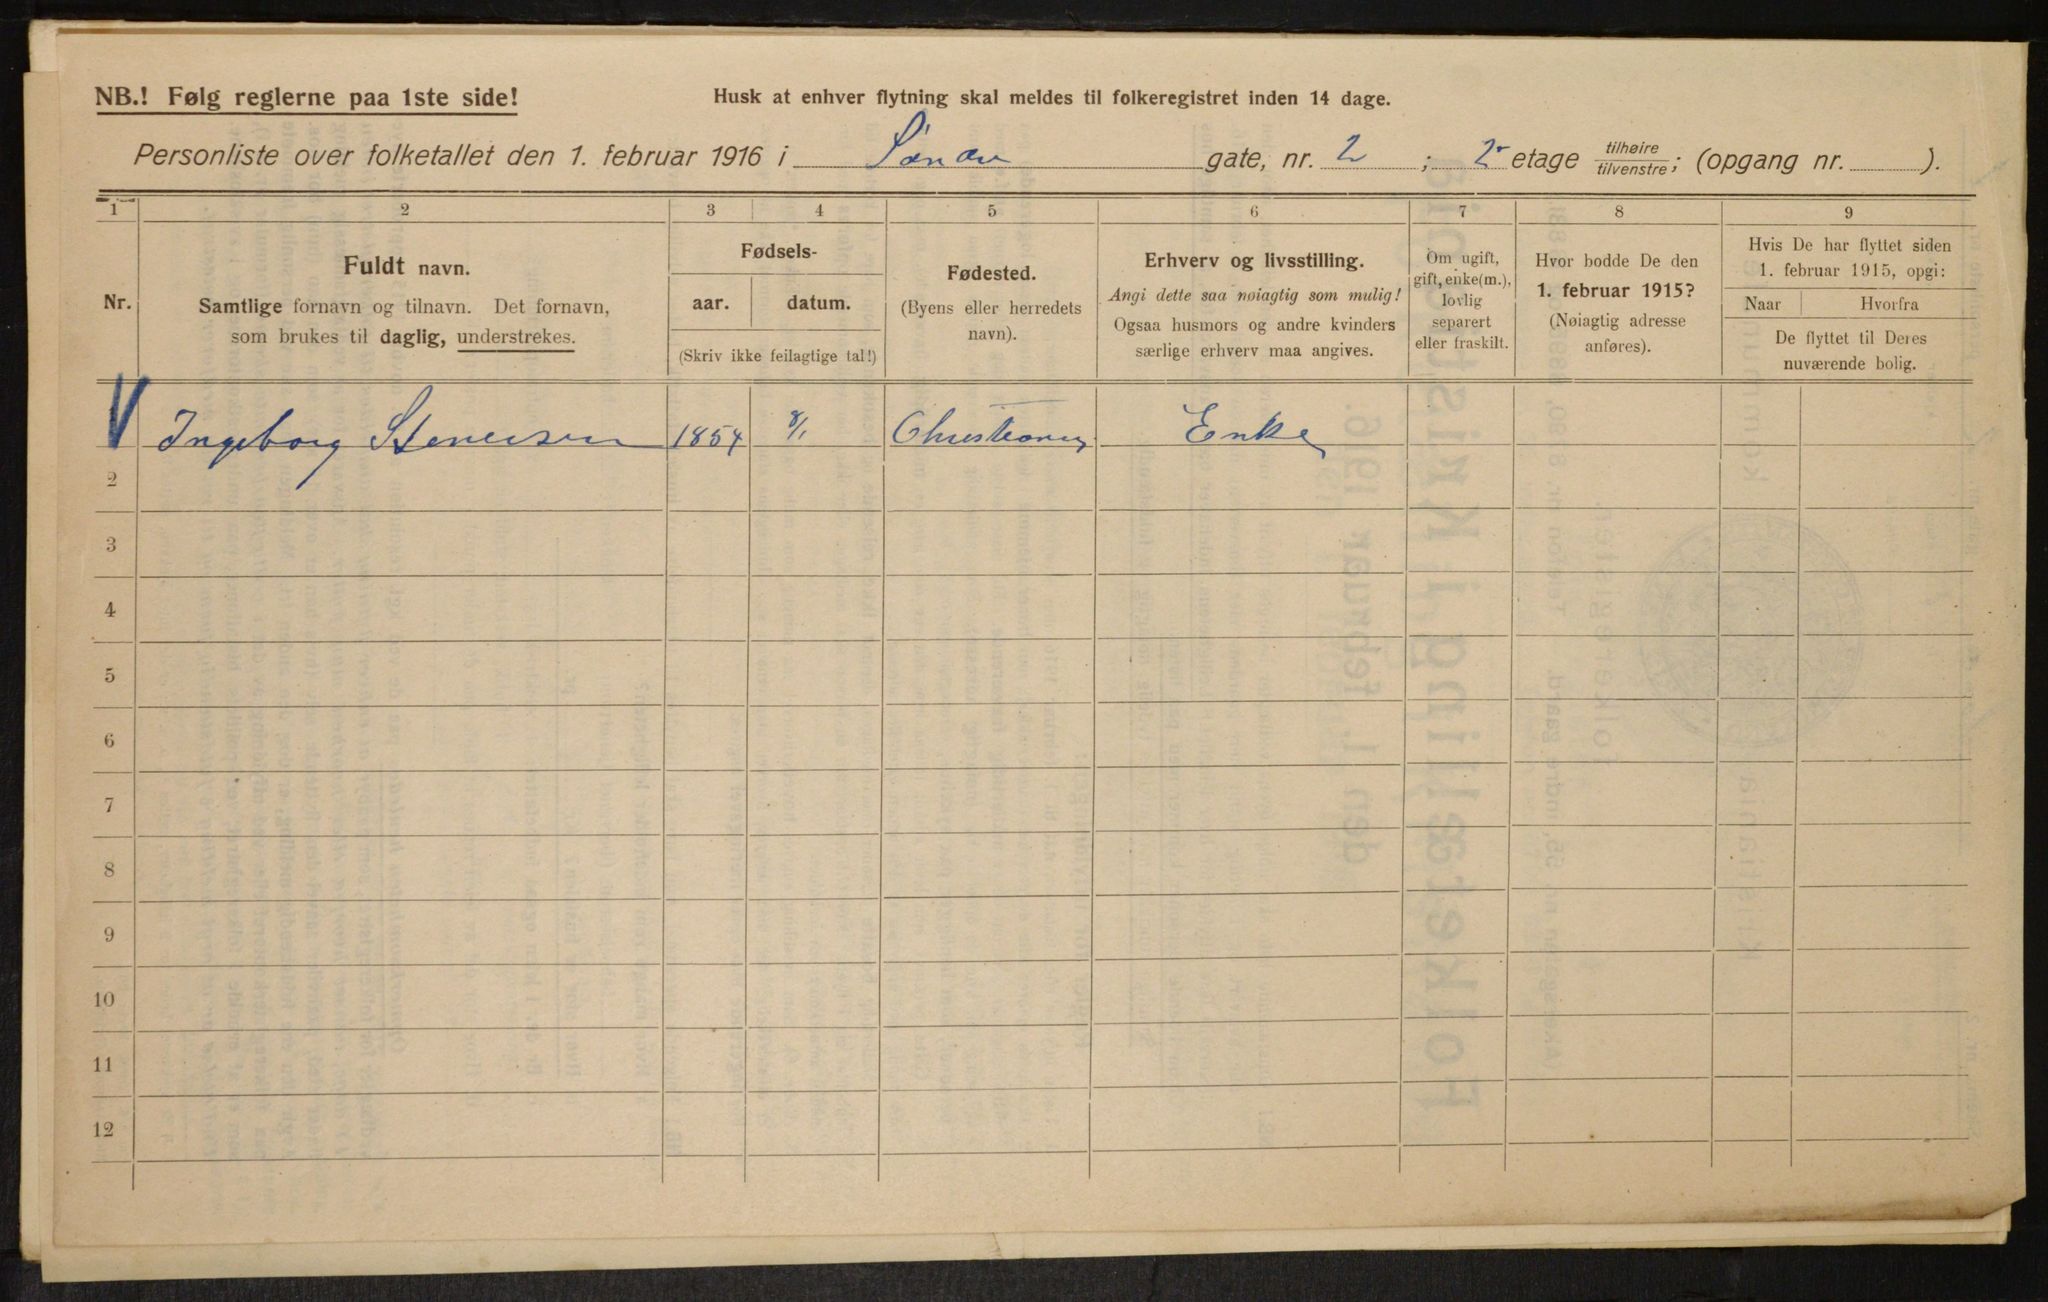 NB.! Følg reglerne paa 1ste side!
Husk at enhver flytning skal meldes til folkeregistret inden 14 dage.
Personliste over folketallet den 1. februar 1916 i gate, nr. 2 ; 2 etage tilhøire/tilvenstre; (opgang nr. ).
1 2 3 4 5 6 7 8 9
Nr.
Fuldt navn.
Samtlige fornavn og tilnavn. Det fornavn,
som brukes til daglig, understrekes.
Fødsels-
aar. datum.
(Skriv ikke feilagtige tal!)
Fødested.
(Byens eller herredets
navn).
Erhverv og livsstilling.
Angi dette saa nøiagtig som mulig!
Ogsaa husmors og andre kvinders
særlige erhverv maa angives.
Om ugift,
gift, enke(m.),
lovlig
separert
eller fraskilt.
Hvor bodde De den
1. februar 1915?
(Nøiagtig adresse
anføres).
Hvis De har flyttet siden
1. februar 1915, opgi:
Naar Hvorfra
De flyttet til Deres
nuværende bolig.
Ingeborg Stenersen 1854 8/1 Christiania Enke
2
3
4
5
6
7
8
9
10
11
12